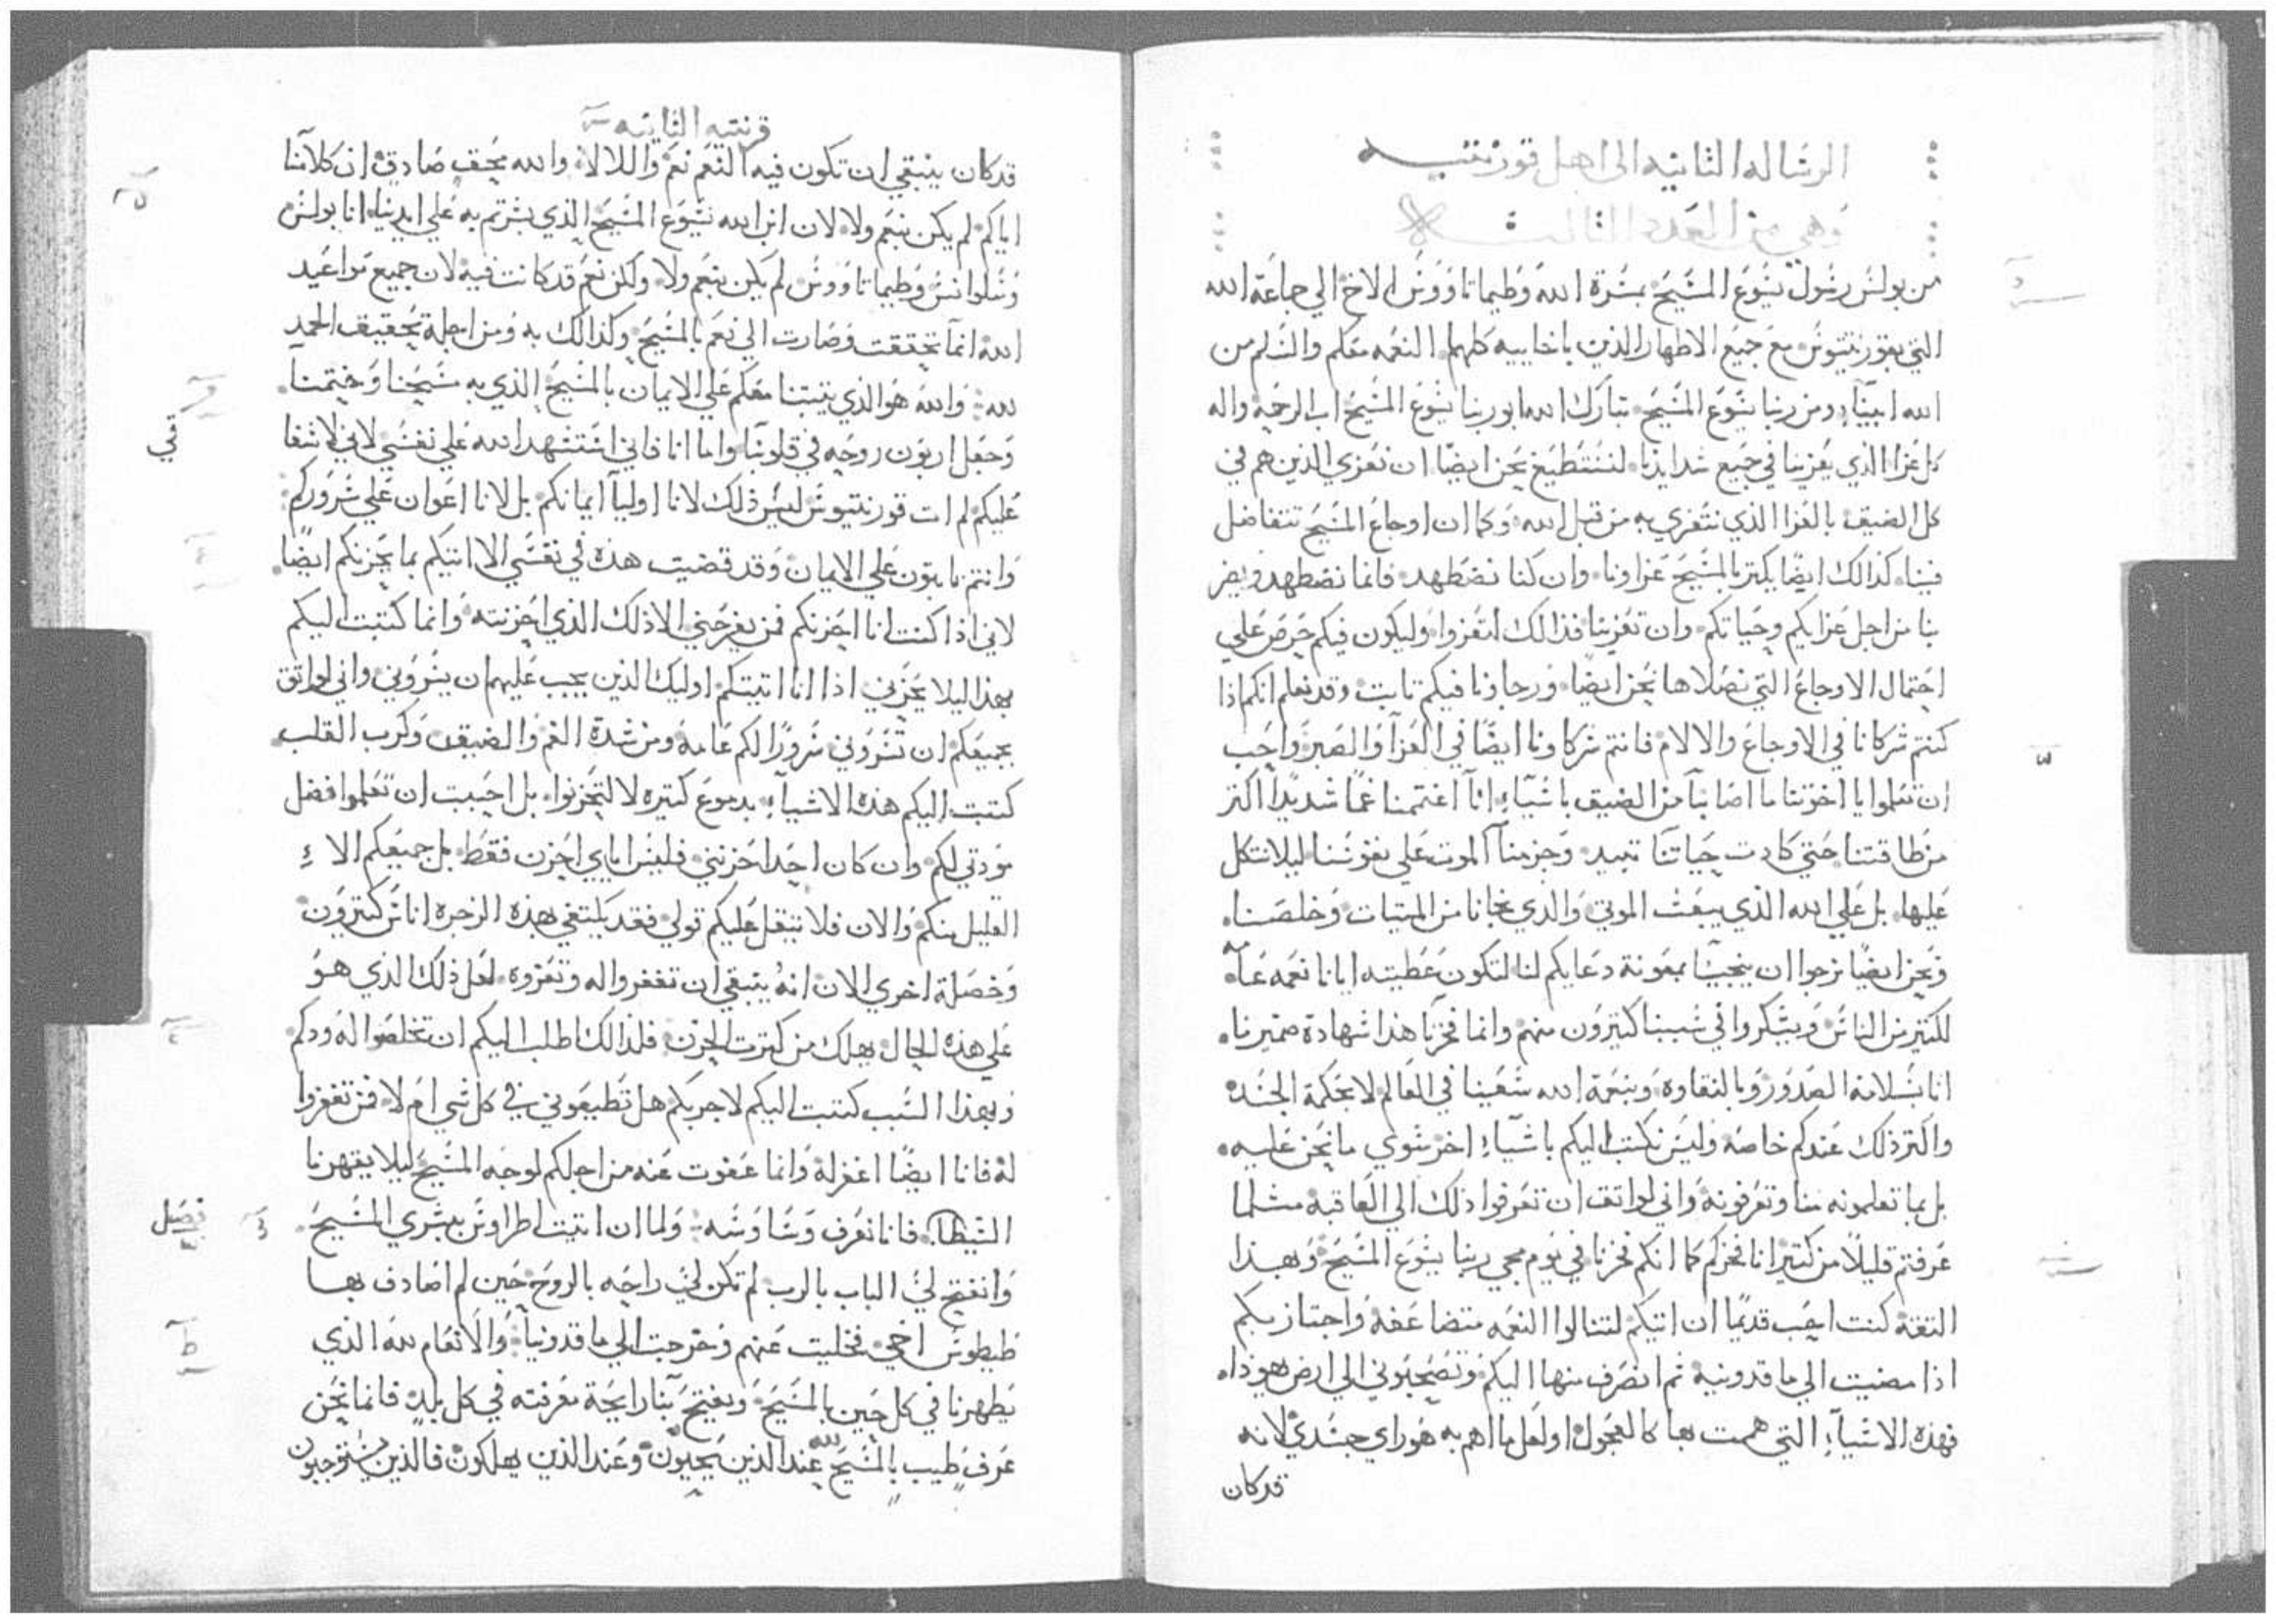 الرسالة الثانيه الى اهل قورنتيه
وهي من العدد الثالث
من بولس رسول يسوع المسيح بمسرة الله وطيماتاووس الاخ الي جماعة الله
التي بقورنتيوس مع جميع الاطهار الذين باخاييه كلها النعمه معكم والسلم من
الله ابينا ومن ربنا يسوع المسيح تبارك الله ابو ربنا يسوع المسيح اب الرحمة واله
كل عزا الذي يعزينا في جميع شدايدنا لنستطيع نحن ايضا ان نعزي الذين هم في
كل الضيق بالعزا الذي نتعزي به من قبل الله وكما ان اوجاع المسيح تتفاضل
فينا كذالك ايضا يكتر بالمسيح عزاونا وان كنا نضطهد فانما نضطهد
بنا من اجل عزايكم وحياتكم وان تعزينا فذالك لتعزوا وليكون فيكم حرص علي
احتمال الاوجاع التي نصلاها نحن ايضا ورجاونا فيكم تابت وقد نعلم انكم اذا
كنتم شركانا في الاوجاع والالام فانتم شركاونا ايضا في العزا والصبر واحب
ان تعلموا يا اخوتنا ما اصابنا من الضيق باسياء انا اغتممنا غما شديدا اكتر
من طاقتنا حتي كادت حياتنا تبيد وجزمنا الموت علي نفوسنا ليلا نتكل
عليها بل علي الله الذي يبعث الموتي والذي نجانا من الميتات وخلصنا
ونحن ايضا نرجوا ان ينجينا بمعونة دعايكم لنا لتكون عطيته ايانا نعمه عامه
للكتير من الناس ويشكروا في سببنا كتيرون منهم وانما فخرنا هذا شهادة ضميرنا
انا بسلامة الصدور وبالنقاوة وبنعمة الله سعينا في العالم لا بحكمة الجسد
واكتر ذلك عندكم خاصه وليس نكتب اليكم باشياء اخر سوي ما نحن عليه
بل بما تعلمونه منا وتعرفونه واني لواتق ان تعرفوا ذلك الي العاقبه متلما
عرفتم قليلا من كتير انا فخركم كما انكم فخرنا في يوم مجي ربنا يسوع المسيح وبهذا
التقة كنت احب قديما ان اتيكم لتنالوا النعمه متضاعفه واجتاز بكم
اذا مضيت الي ماقدونية ثم انصرف منها اليكم وتصحبوني الي ارض يهوذا
فهذه الاشياء التي هممت بها كالعجول او لعل ما اهم به هو راي جسدي لانه
قد كان
قرنتيه الثانيه
قد كان ينبغي ان تكون فيه النعم نعم واللا لا والله يحق صادق ان كلامنا
اياكم لم يكن بنعم ولا لان ابن الله يسوع المسيح الذي بشرتم به علي ايدينا انا بولس
وسلوانس وطيماتاووس لم يكن بنعم ولا ولكن نعم قد كانت فيه لان جميع مواعيد
الله انما تحققت وصارت الي نعم بالمسيح وكذالك به ومن اجله تحقيق الحمد
لله والله هو الذي يتبتنا معكم علي الايمان بالمسيح الذي به مسحنا وختمنا
وجعل اربون روحه في قلوبنا واما انا فاني استشهد الله علي نفسي لاني لاشفا
عليكم لم ات قورنتيوس ليس ذلك لانا اوليا ايمانكم بل لانا اعوان علي سروركم
وانتم تابتون علي الايمان وقد قضيت هذه في نفسي الا اتيكم بما يحزنكم ايضا
لاني اذا كنت انا احزنكم فمن يفرحني الا ذلك الذي احزنته وانما كتبت اليكم
بهذا ليلا يحزني اذا انا اتيتكم اوليك الذين يجب عليهم ان يسروني واني لواتق
بجميعكم ان تسروني سرورا لكم عامه ومن شدة الغم والضيق وكرب القلب
كتبت اليكم هذه الاشياء بدموع كتيره لا لتحزنوا بل احببت ان تعلموا فضل
مودتي لكم وان كان احدا حزنني فليس اياي احزن فقط بل جميعكم الاء
القليل منكم والان فلا يتقل عليكم قولي فقد يكتفي بهذه الزجره اناس كتيرون
وخصلة اخري الان انه ينبغي ان تغفروا له وتعزوه لعل ذلك الذي هو
علي هذه الحال يهلك من كترت الحزن فلذالك اطلب اليكم ان تخلصوا له ودكم
وبهذا السبب كتبت اليكم لاجربكم هل تطيعوني في كل شي ام لا فمن تغفروا
له فانا ايضا اغفر له وانما عفوت عنه من اجلكم لوجه المسيح ليلا يقهرنا
الشيطان فانا نعرف وساوسه ولما ان اتيت اطراوس ببشري المسيح
وانفتح لي الباب بالرب لم تكن لي راحه بالروح حين لم اصادف بها
طيطوس اخي فخليت عنهم وخرجت الي ماقدونيا والانعام لله الذي
يطهرنا في كل حين بالمسيح ويفتح بنا رايحة معرفته في كل بلد فانما نحن
عرف طيب بالمسيح لله عند الذين يحيون وعند الذين يهلكون فالذين يستوجبون
فصل